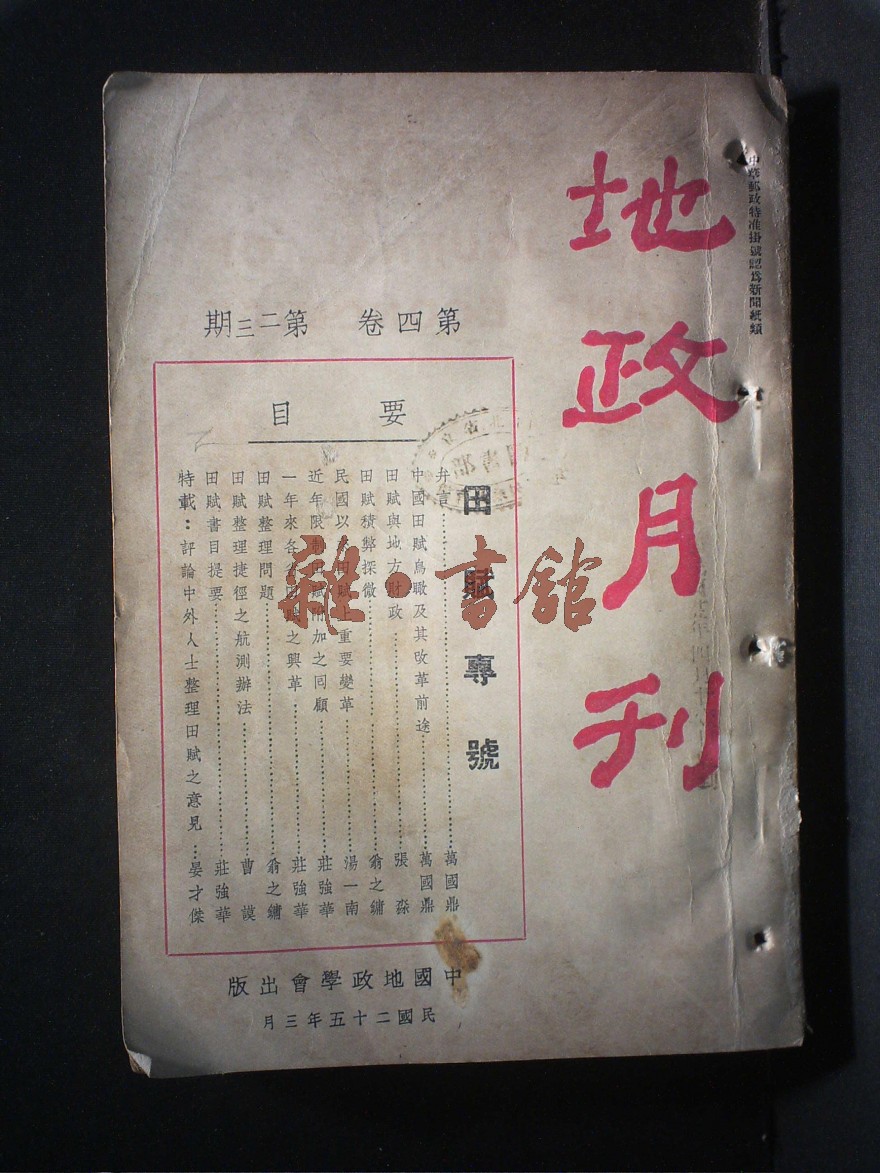 中華郵政特准掛號認爲新聞紙類
地政月刊
第四卷 第二三期
要目
田賦專號
弁言……萬國鼎
中國田賦鳥瞰及其改革前途……萬國鼎
田賦與地方財政……張淼
田賦積弊探微……翁之鏞
民國以來田賦之重要變革……湯一南
近年限制田賦附加之回顧……莊強華
一年來各省田賦之興革……莊強華
田賦整理問題……翁之鏞
田賦整理捷徑之航測辦法……曹謨
田賦書目提要……莊強華
特載：評論中外人士整理田賦之意見…晏才傑
中國地政學會出版
民國二十五年三月
雜·書館